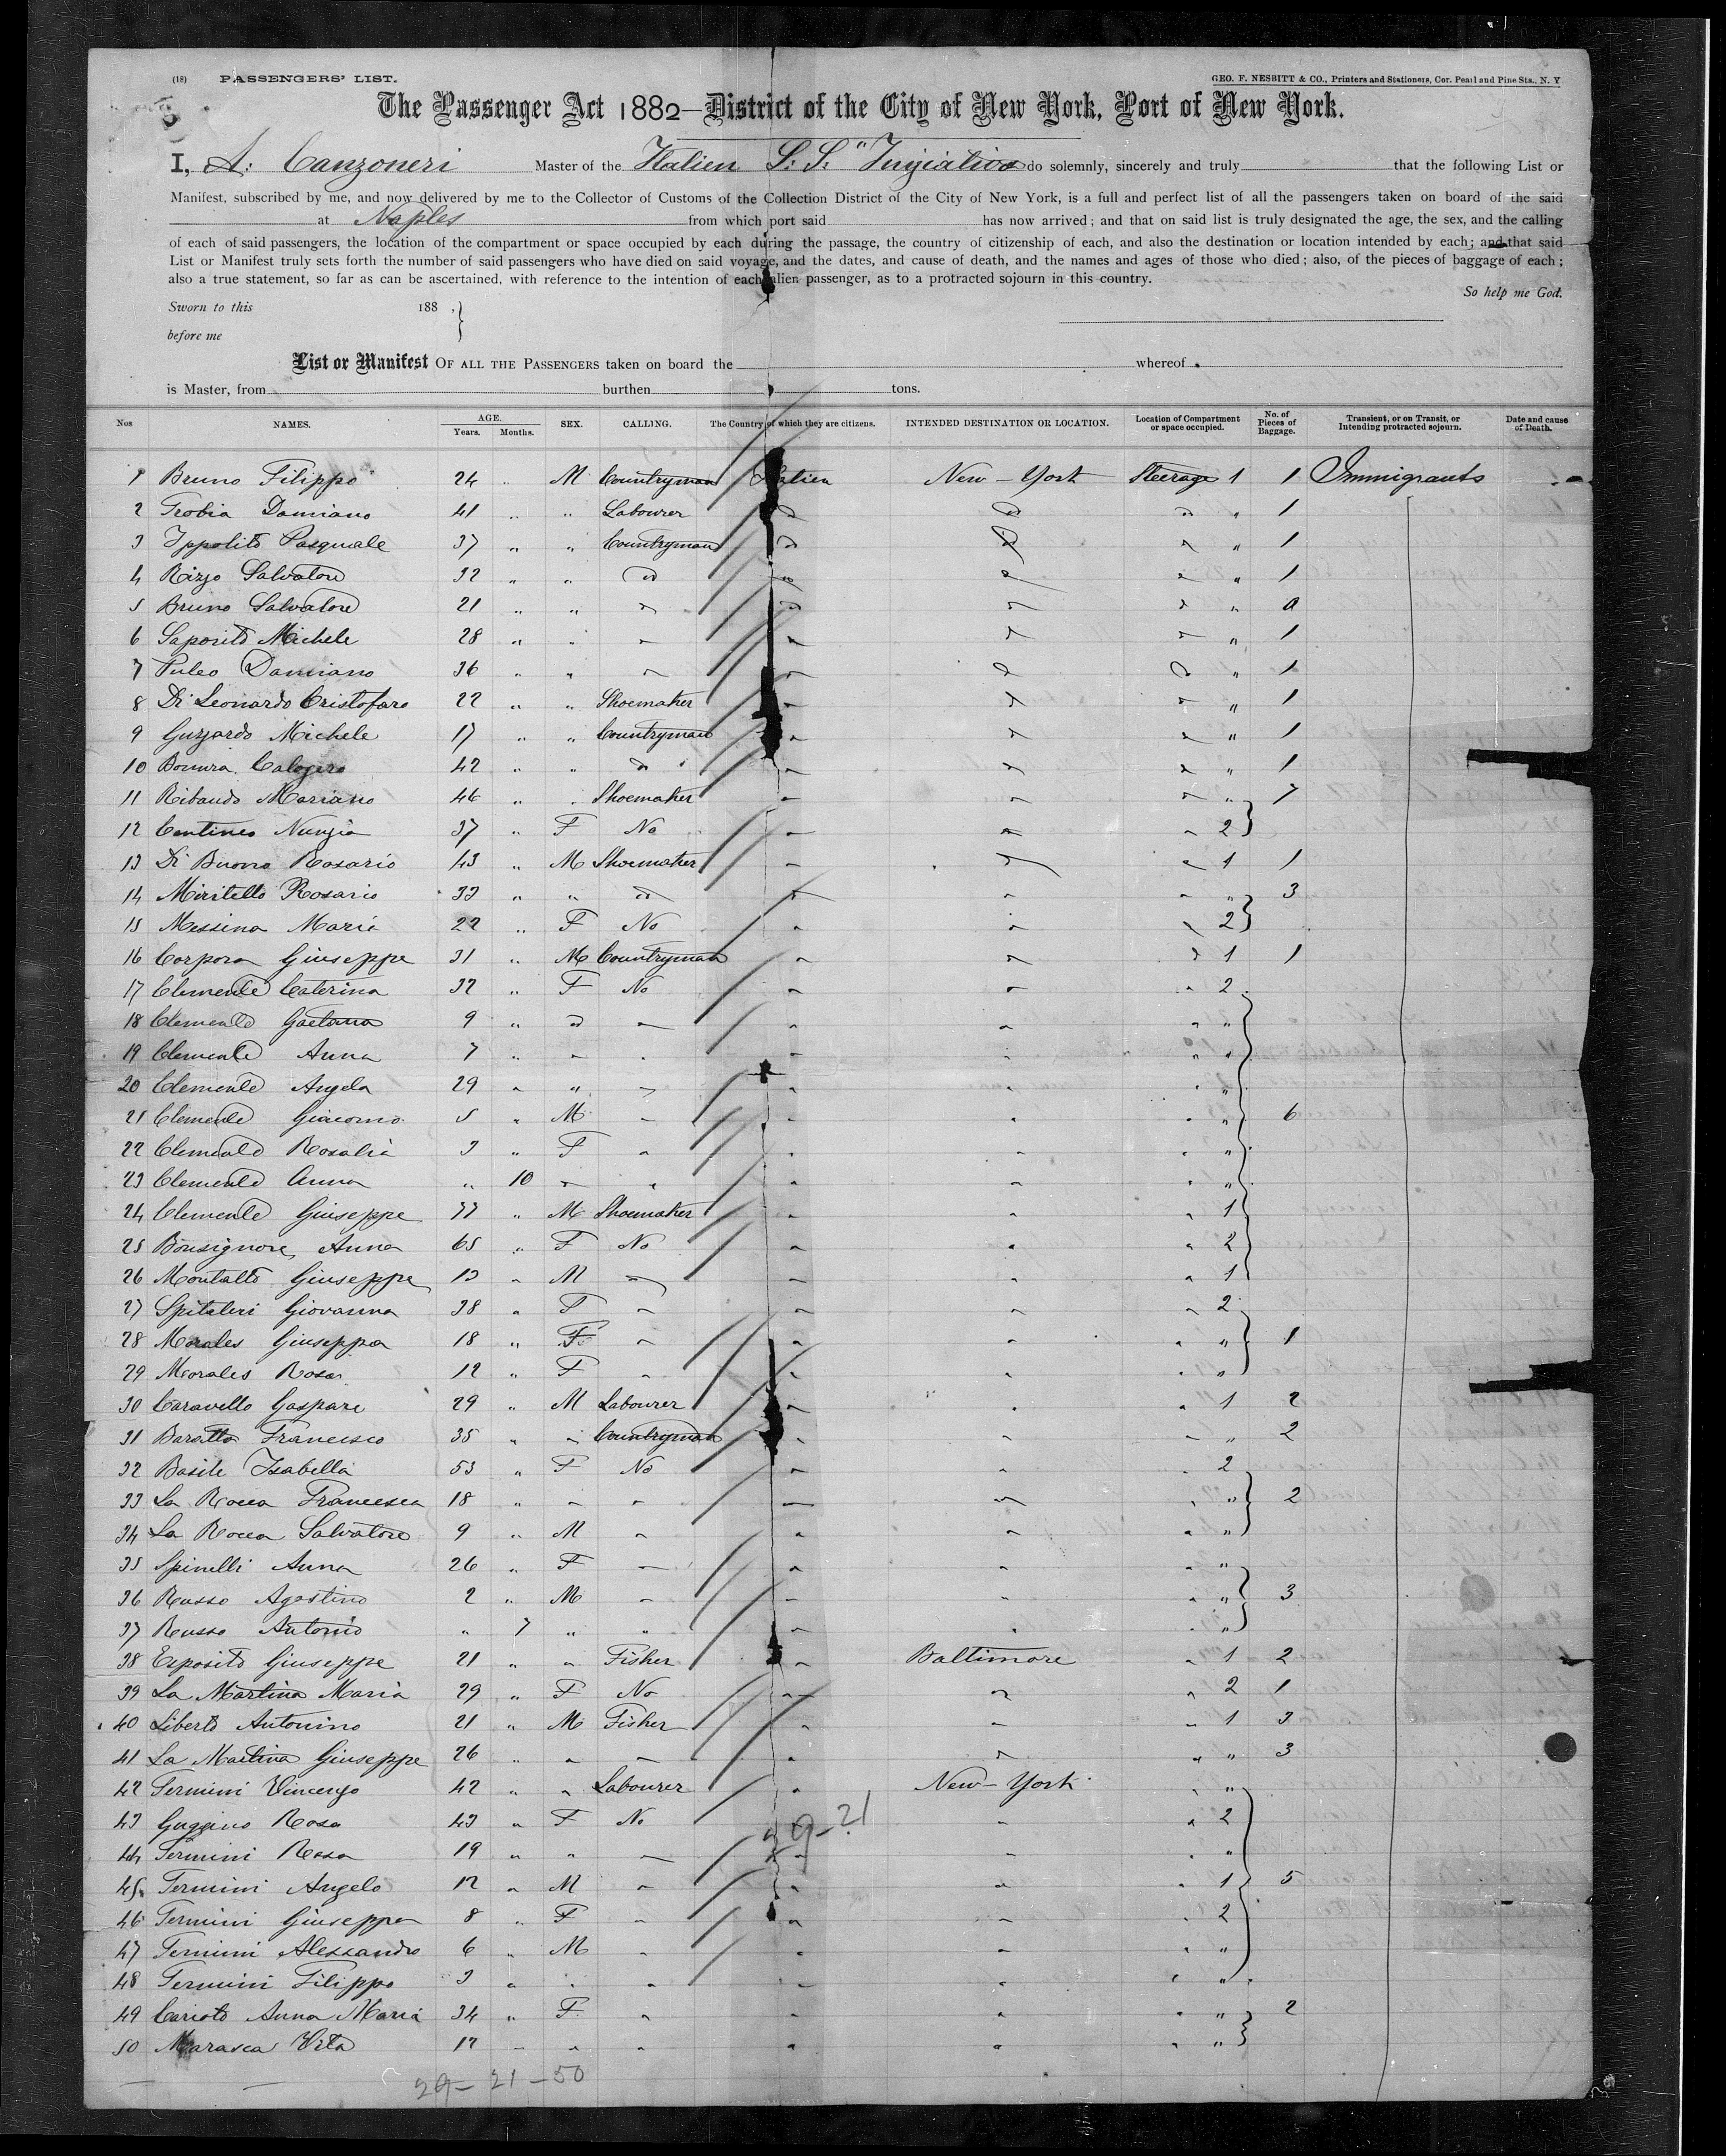 (18) PASSENGERS' LIST. GEO. F. NESBITT & CO., Printers and Stationers, Cor. Pearl and Pine Sts., N. Y
The Passenger Act 1882—District of the City of New York, Port of New York.
I, A. Canzoneri Master of the Italien S. S. "Iniziativa do solemnly, sincerely and truly that the following List or
Manifest, subscribed by me, and now delivered by me to the Collector of Customs of the Collection District of the City of New York, is a full and perfect list of all the passengers taken on board of the said
at Naples from which port said has now arrived; and that on said list is truly designated the age, the sex, and the calling
of each of said passengers, the location of the compartment or space occupied by each during the passage, the country of citizenship of each, and also the destination or location intended by each; and that said
List or Manifest truly sets forth the number of said passengers who have died on said voyage, and the dates, and cause of death, and the names and ages of those who died; also, of the pieces of baggage of each;
also a true statement, so far as can be ascertained, with reference to the intention of each alien passenger, as to a protracted sojourn in this country.
So help me God.
Sworn to this 188 ,
before me
List or Manifest OF ALL THE PASSENGERS taken on board the whereof
is Master, from burthen tons.
Nos NAMES. AGE. Years. Months. SEX. CALLING. The Country of which they are citizens. INTENDED DESTINATION OR LOCATION. Location of Compartment or space occupied. No. of Pieces of Baggage. Transient, or on Transit, or Intending protracted sojourn. Date and cause of Death.
1 Bruno Filippo 24 " M Countryman Italien New-York Steerage 1 1 Immigrants
2 Trobia Damiano 41 " " Labourer do do do " 1
3 Ippolito Pasquale 37 " " Countryman do do " 1
4 Rizzo Salvatore 32 " " do " 1
5 Bruno Salvatore 21 " " " 0
6 Saposito Michele 28 " " " 1
7 Puleo Damiano 36 " " " 1
8 Di Leonardo Cristofaro 22 " " Shoemaker " 1
9 Guzzardo Michele 17 " " Countryman " 1
10 Bonura Calogero 42 " " do " 1
11 Ribaudo Mariano 46 " " Shoemaker " 7
12 Centineo Nunzia 37 " F No 2
13 Di Buono Rosario 43 " M Shoemaker 1 1
14 Miritello Rosario 33 " " do " 3
15 Messina Maria 22 " F No 2
16 Corpora Giuseppe 31 " M Countryman 1 1
17 Clemente Caterina 32 " F No 2
18 Clemente Gaetana 9 " do "
19 Clemente Anna 7 " "
20 Clemente Angela 29 " " "
21 Clemente Giacomo 5 " M " 6
22 Clemente Rosalia 3 " F "
23 Clemente Anna " 10 "
24 Clemente Giuseppe 33 " M Shoemaker 1
25 Bonsignore Anna 65 " F No 2
26 Montalto Giuseppe 13 " M 1
27 Spitaleri Giovanna 38 " F 2
28 Morales Giuseppa 18 " F " 1
29 Morales Rosa 12 " F "
30 Caravello Gaspare 29 " M Labourer 1 2
31 Baratta Francesco 35 " " Countryman " 2
32 Basile Isabella 53 " F No 2
33 La Rocca Francesca 18 " " 2
34 La Rocca Salvatore 9 " M "
35 Spinelli Anna 26 " F "
36 Russo Agostino 2 " M " 3
37 Russo Antonio " 7 " " "
38 Esposito Giuseppe 21 " " Fisher Baltimore 1 2
39 La Martina Maria 29 " F No 2 1
40 Liberto Antonino 21 " M Fisher 1 3
41 La Martina Giuseppe 26 " " " 3
42 Termini Vincenzo 42 " " Labourer New-York "
43 Guggino Rosa 43 " F No 2
44 Termini Rosa 19 " " "
45 Termini Angelo 12 " M 1 5
46 Termini Giuseppa 8 " F 2
47 Termini Alessandro 6 " M "
48 Termini Filippo 3 " "
49 Cariolo Anna Maria 34 " F " 2
50 Marasca Vita 17 "
29-21
29-21-50